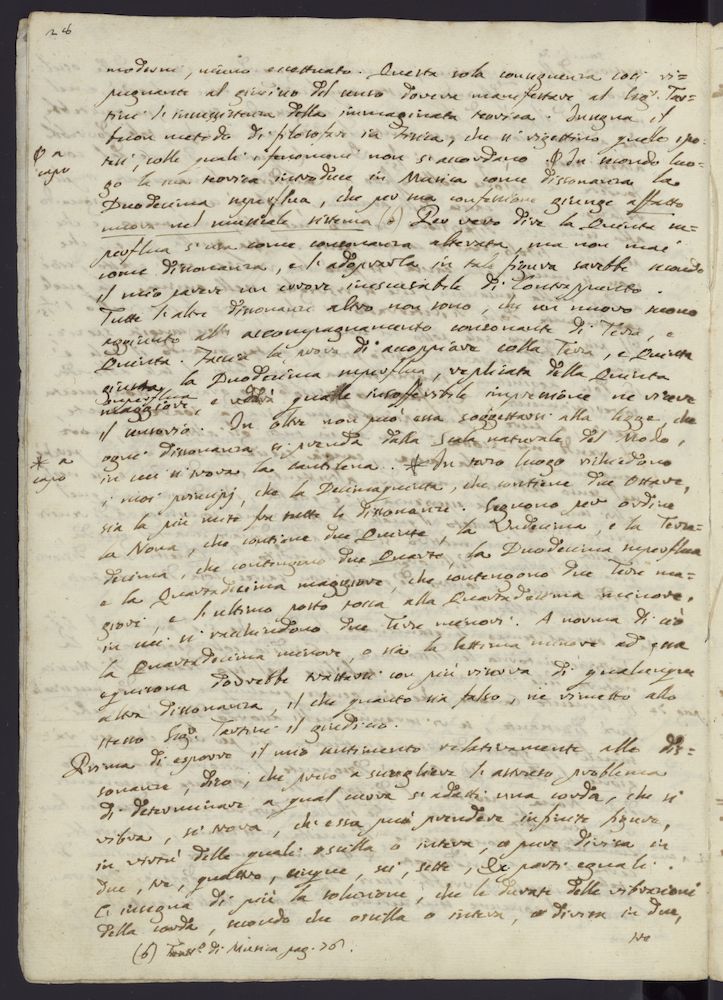 26
moderni, niuno eccettuato. Questa sola conseguenza così ri=
pugnante al giudizio del senso doveva manifestare al Sigr. Tar=
tini l'insussistenza della immaginata teorica. Insegna il
buon metodo di filosofare in Fisica, che si rigettino quelle ipo=
tesi, colle quali i fenomeni non si accordano. In secondo luo=
go la sua teorica introduce in Musica come dissonanza la
Duodecima superflua, che per sua confessione giunge affatto
nuova nel musicale sistema (6) Per vero dire la Quinta su=
perflua si usa come consonanza alterata, ma non mai
come dissonanza, e l'adoprarla in tale figura sarebbe secondo
il mio parere un errore inescusabile di Contrappunto.
Tutte le altre dissonanze altro non sono, che un nuovo suono
aggiunto all' accompagnamento consonante di Terza, e
Quinta. Faccia la prova di accoppiare colla Terza, e Quinta
giusta, la Duodecima superflua, replicata della Quinta
superflua
maggiore, e vedrà quale insoffribile impressione ne riceve
il sensorio. In oltre non può essa soggettarsi alla legge, che
ogni dissonanza si prenda dalla Scala naturale del Modo,
in cui si trova la cantilena. In terzo luogo richiedono
i suoi principj, che la Decimaquinta, che contiene due Ottave,
sia la più mite fra tutte le dissonanze. Seguono per ordine
la Nona, che contiene due Quinte, la Undecima, e la Terza=
decima, che contengono due Quarte, la Duodecima superflua
e la Quartadecima maggiore, che contengono due Terze ma=
giori, e l'ultimo posto tocca alla Quartadecima minore,
in cui si racchiudono due Terze minori. A norma di ciò
la Quartadecima minore, o sia la Settima minore ad essa
equisona dovrebbe trattarsi con più riserva di qualunque
altra dissonanza, il che quanto sia falso, ne rimetto allo
stesso Sigr. Tartini il giudizio.
Prima di esporre il mio sentimento relativamente alle dis=
sonanze, dirò, che preso a sciogliere l'astruso problema
di determinare a qual curva si adatti una corda, che si
vibra, si trova, che essa può prendere infinite figure,
in virtù delle quali oscilla o intera, o pure divisa in
due, tre, quattro, cinque, sei, sette, &c parti eguali.
C'insegna di più la soluzione, che le durate delle vibrazioni
della corda, secondo che oscilla o intera, o divisa in due,
tre
(6) Tratto. di Musica pag. 76.
φ a
capo
* a
capo